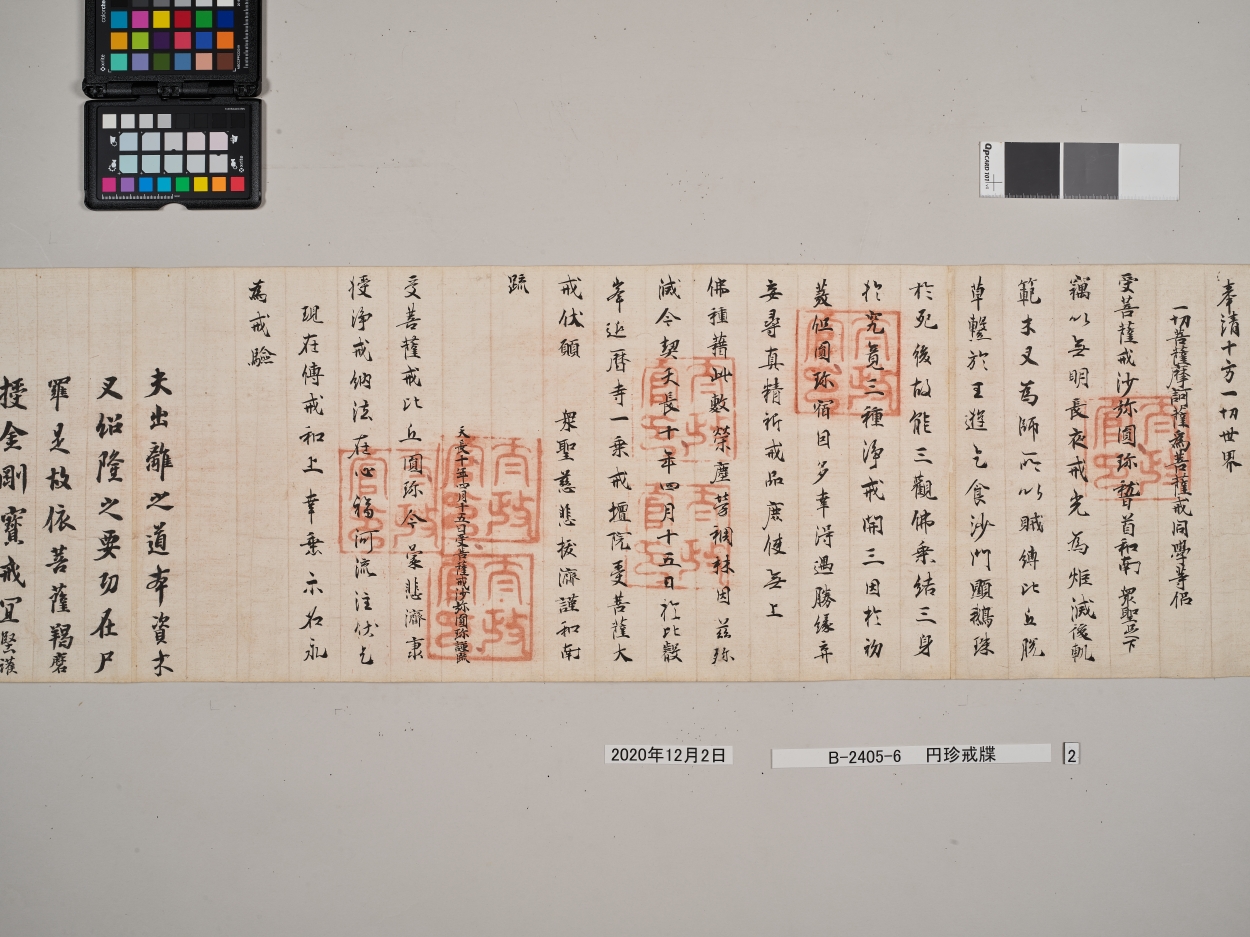 奉請十方一切世界
一切菩薩摩訶薩為菩薩戒同學等侶
受菩薩戒沙弥圓珎稽首和南 衆聖足下
竊以無明長夜戒光為炬滅後軌
範木叉為師所以賊縛比丘脱
草繫於王遊乞食沙門顯鵝珠
於死後故能三觀佛乗結三身
於究竟三種淨戒開三因於初
義但圓珎宿因多幸得遇勝縁弃
妄尋真精祈戒品庶使無上
佛種藉此敷榮塵勞稠林因茲殄
滅今契天長十年四月十五日於比叡
峯延曆寺一乗戒壇院受菩薩大
戒伏願 衆聖慈悲拔濟謹和南
疏
天長十年四月十五日受菩薩戒沙弥圓珎謹疏
受菩薩戒比丘圓珎今蒙悲濟稟
授淨戒納法在心福河流注伏乞
現在傳戒和上幸垂示名永
為戒驗
夫出離之道本資木
叉紹隆之要功在尸
羅是故依菩薩羯磨
授金剛寶戒宜堅護
太政官印
2020年12月2日
B-2405-6 円珍戒牒
2
QPcard 101
x-rite